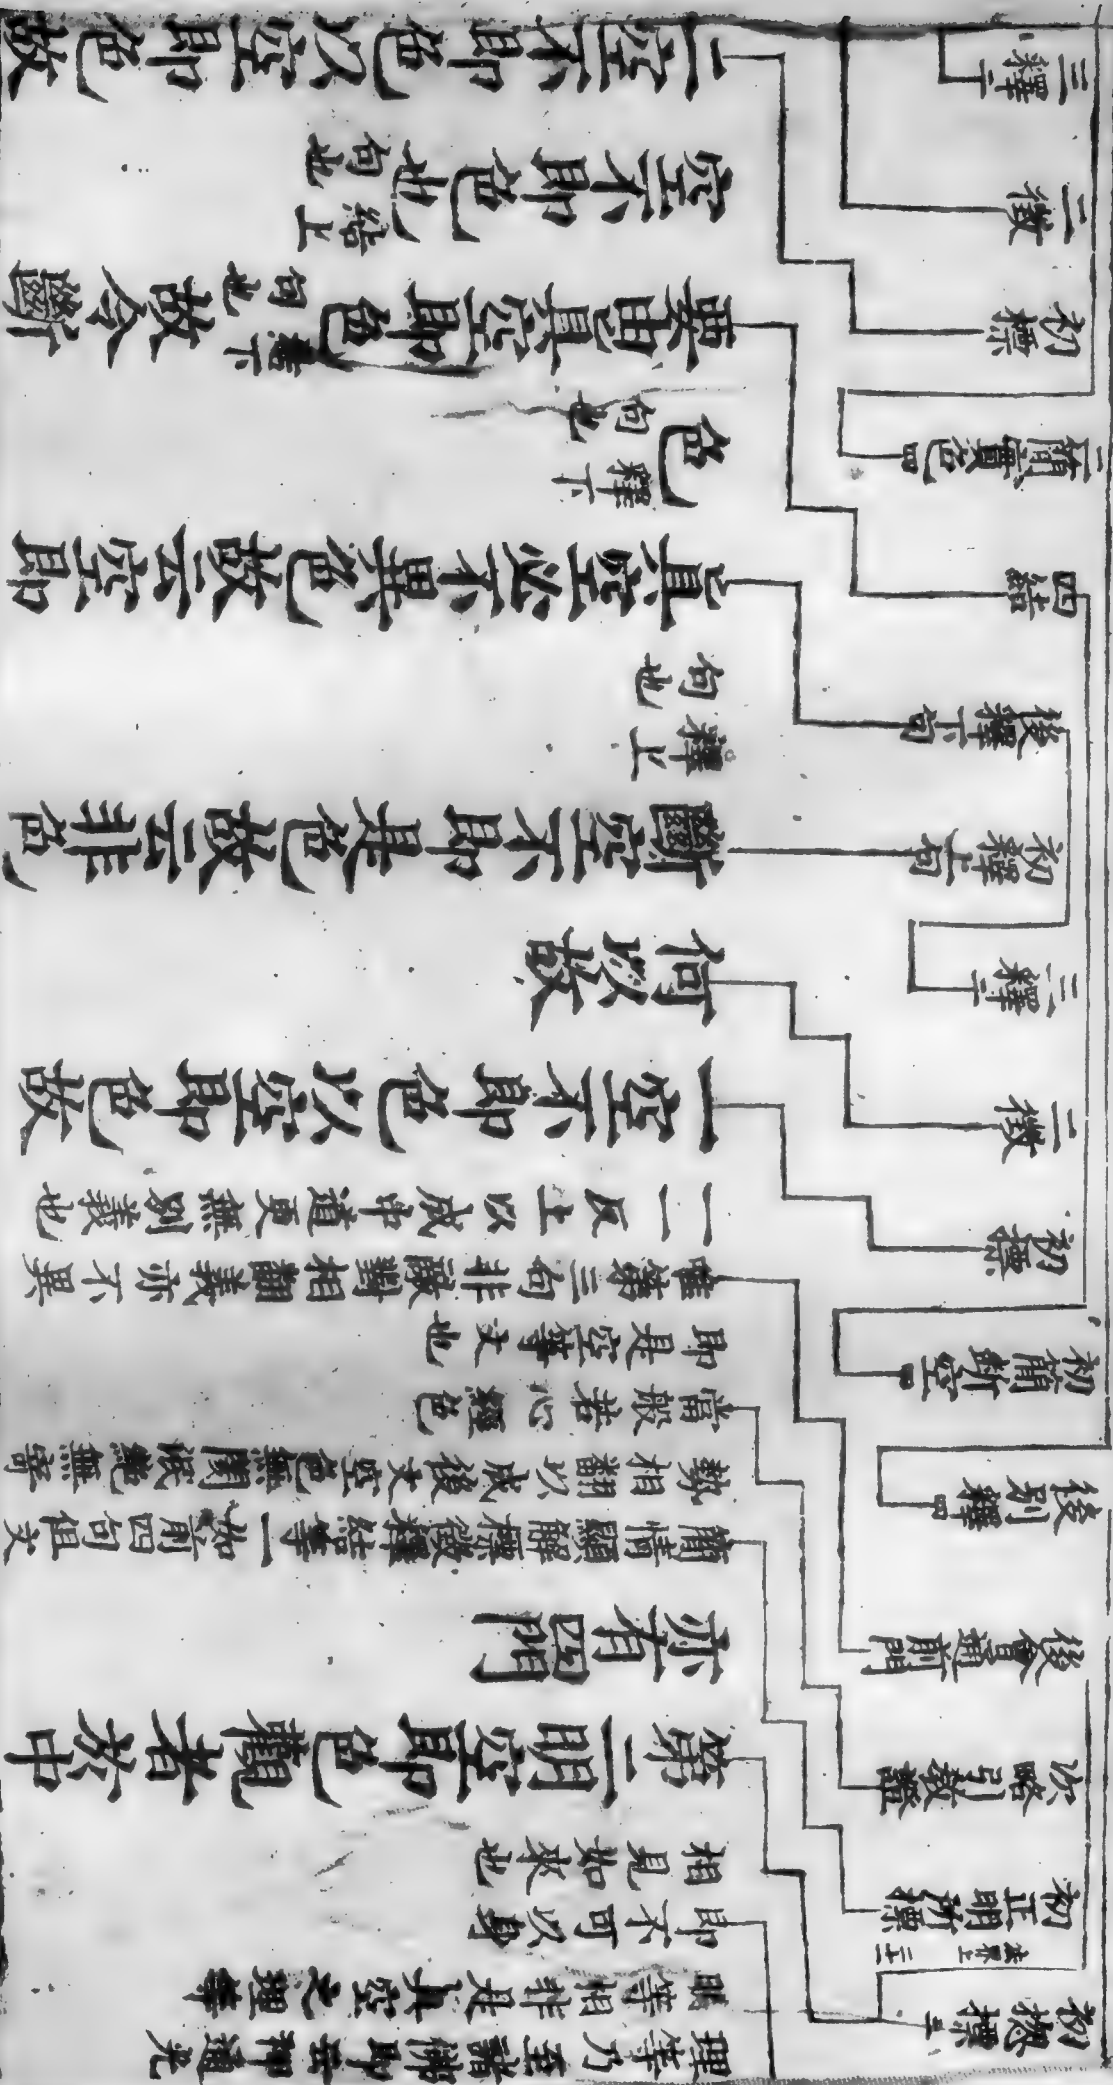 初總標三
法界上 二十二
初正明所標
次略引教證
後會通前門
後別釋四
初簡斷空四
初標
二徵
三釋二
初釋上句
後釋下句
四結
二簡實色四
初標
二徵
三釋二
理等乃至諸佛即言神通光
明等相非是真空之理等
即不可以身
相見如來也
第二明空即色觀者於中
亦有四門
簡情顯解標徵釋結等一如前四句但文
勢相翻以成後文空色無閡泯絕無寄
當般若心經色
即是空等文也
唯第三句非敵對相翻義亦不異
一一反上以成中道更無別義也
一空不即色以空即色故
何以故
斷空不即是色故云非色
釋上句也
真空必不異色故云空即
色釋下句也
要由真空即色結下句也故令斷
空不即色也結上句也
二空不即色以空即色故